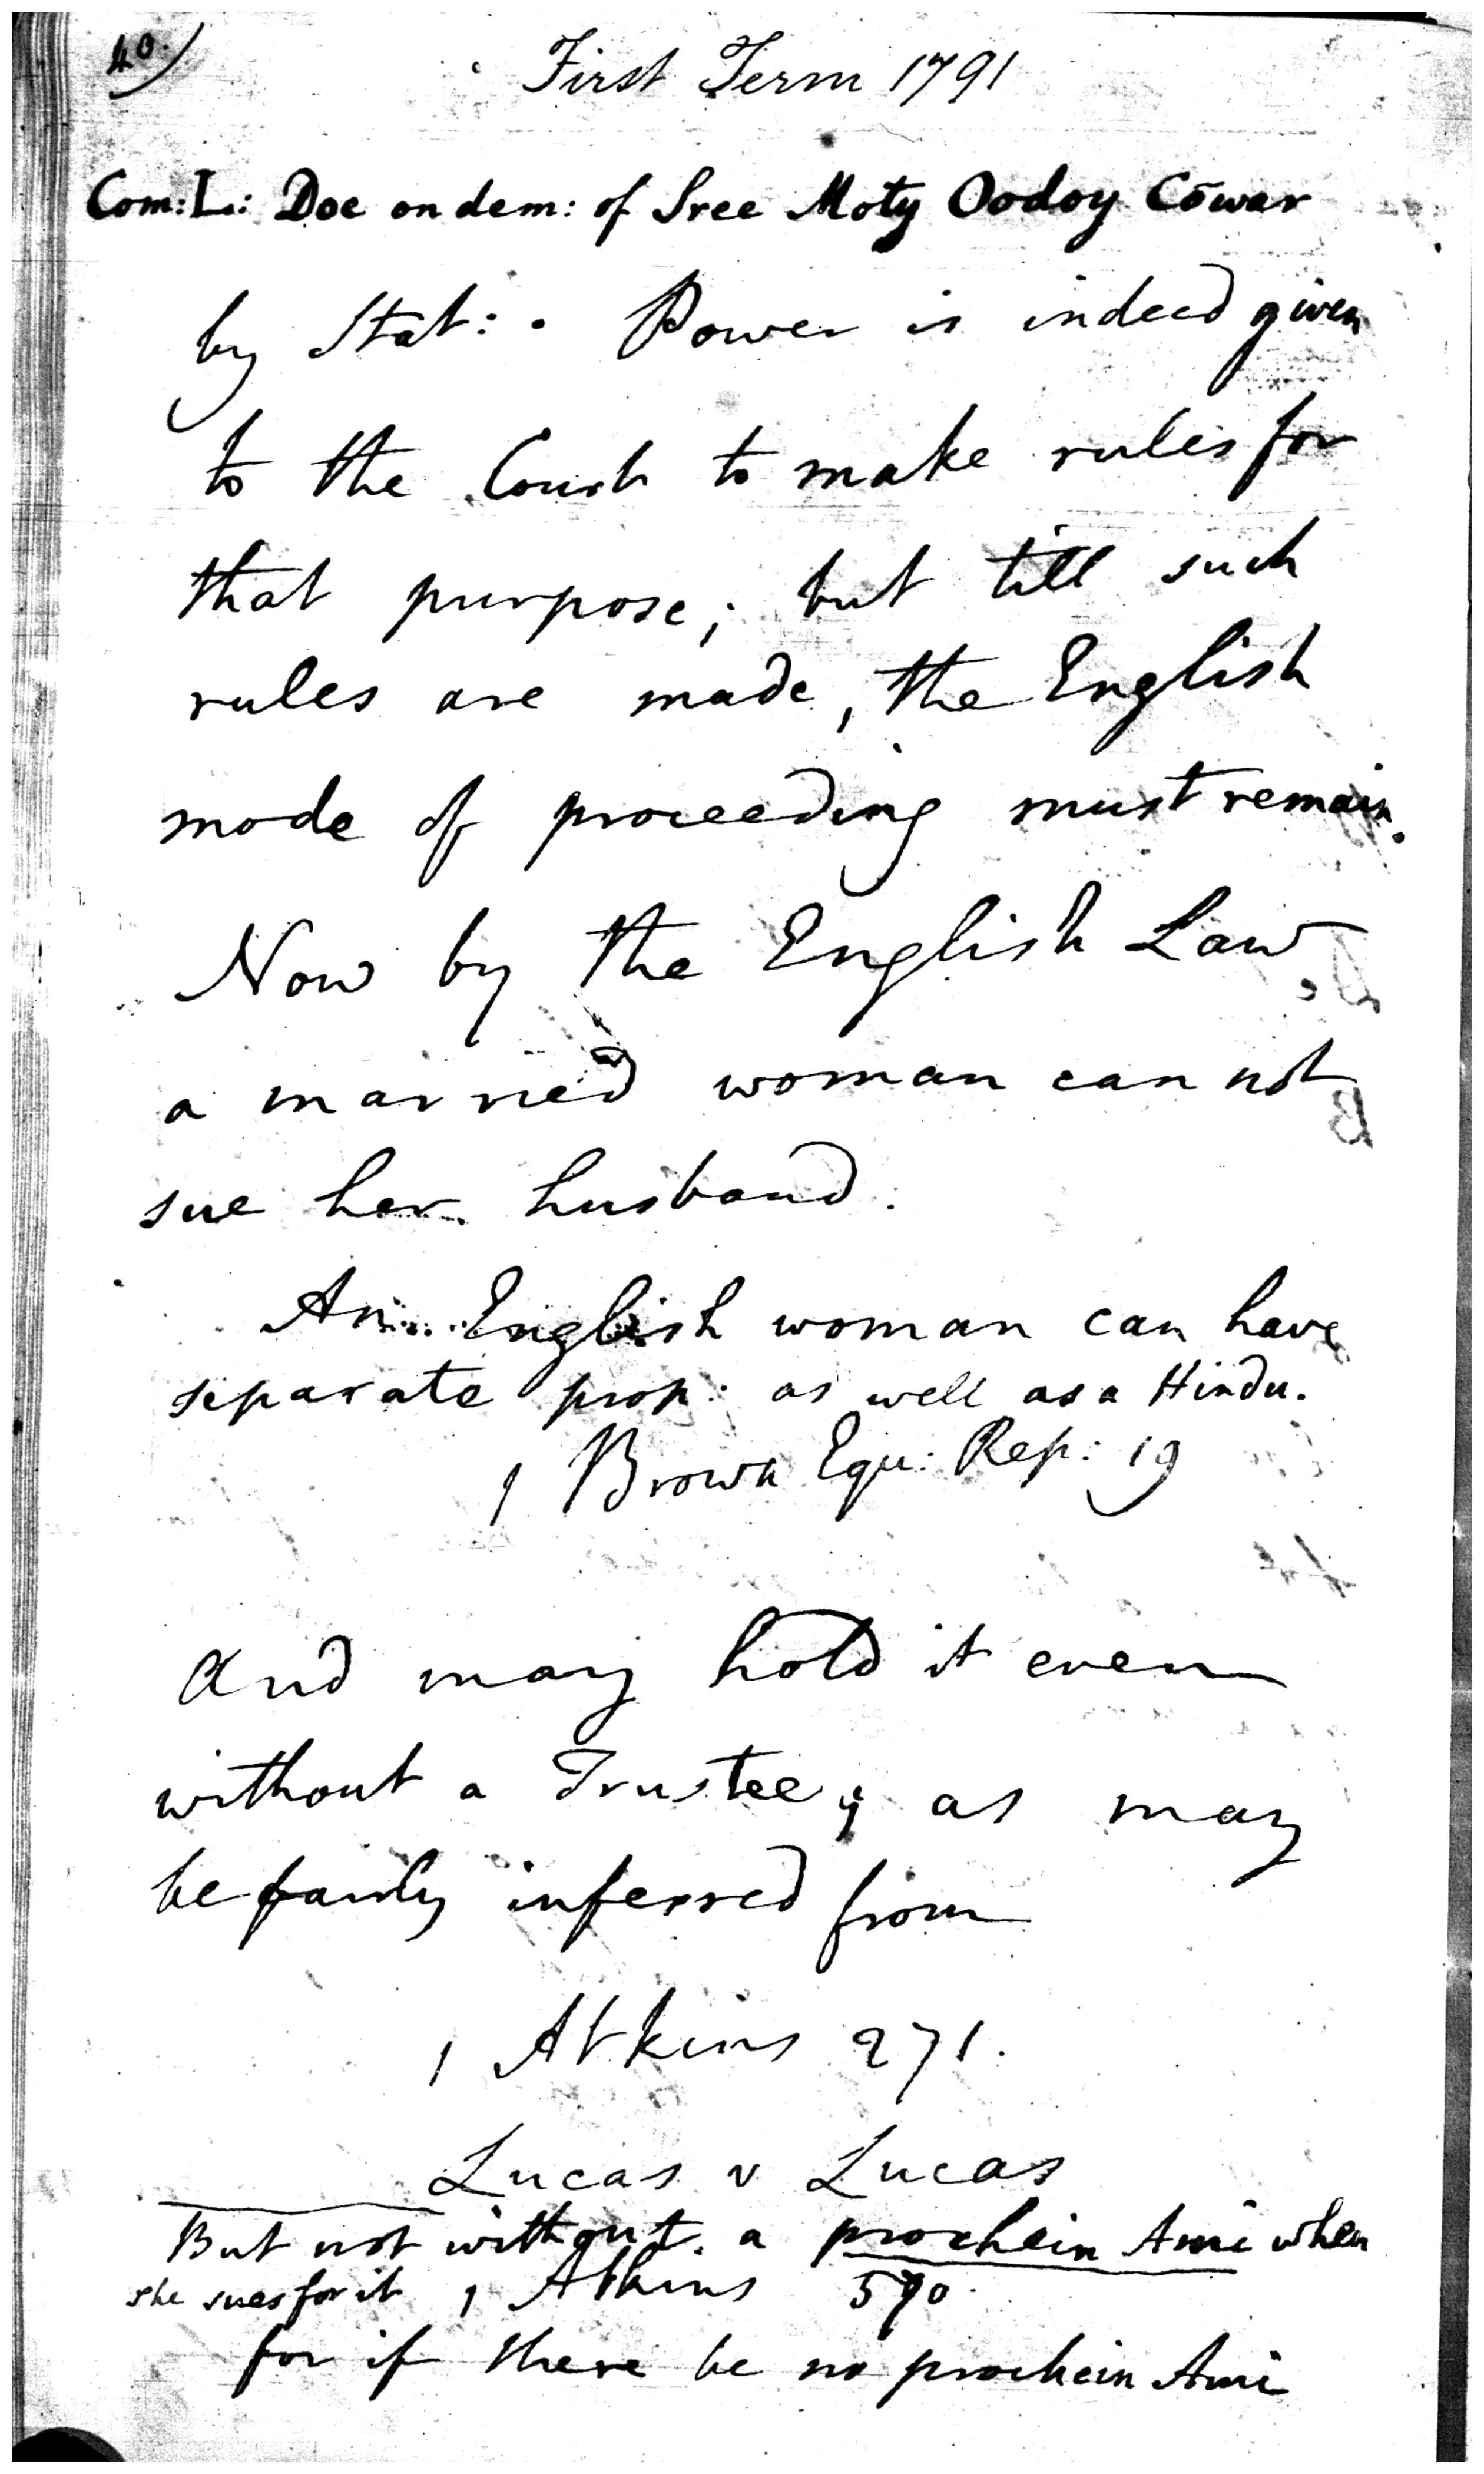 40.
First Term 1791
Com: L: Doe on dem: of Sree Moty Oodoy Cōwar
by Stat: . Power is indeed given
to the Court to make rules for
that purpose; but till such
rules are made, the English
mode of proceeding must remain.
Now by the English Law
a married woman can not
sue her husband.
An English woman can have
separate prop: as well as a Hindu.
1 Brown Equ: Rep: 19
And may hold it even
without a Trustee; as may
be fairly inferred from
1 Atkins 271.
Lucas v Lucas
But not without a prochein Ami when
she sues for it 1 Atkins 570.
for if there be no prochein Ami